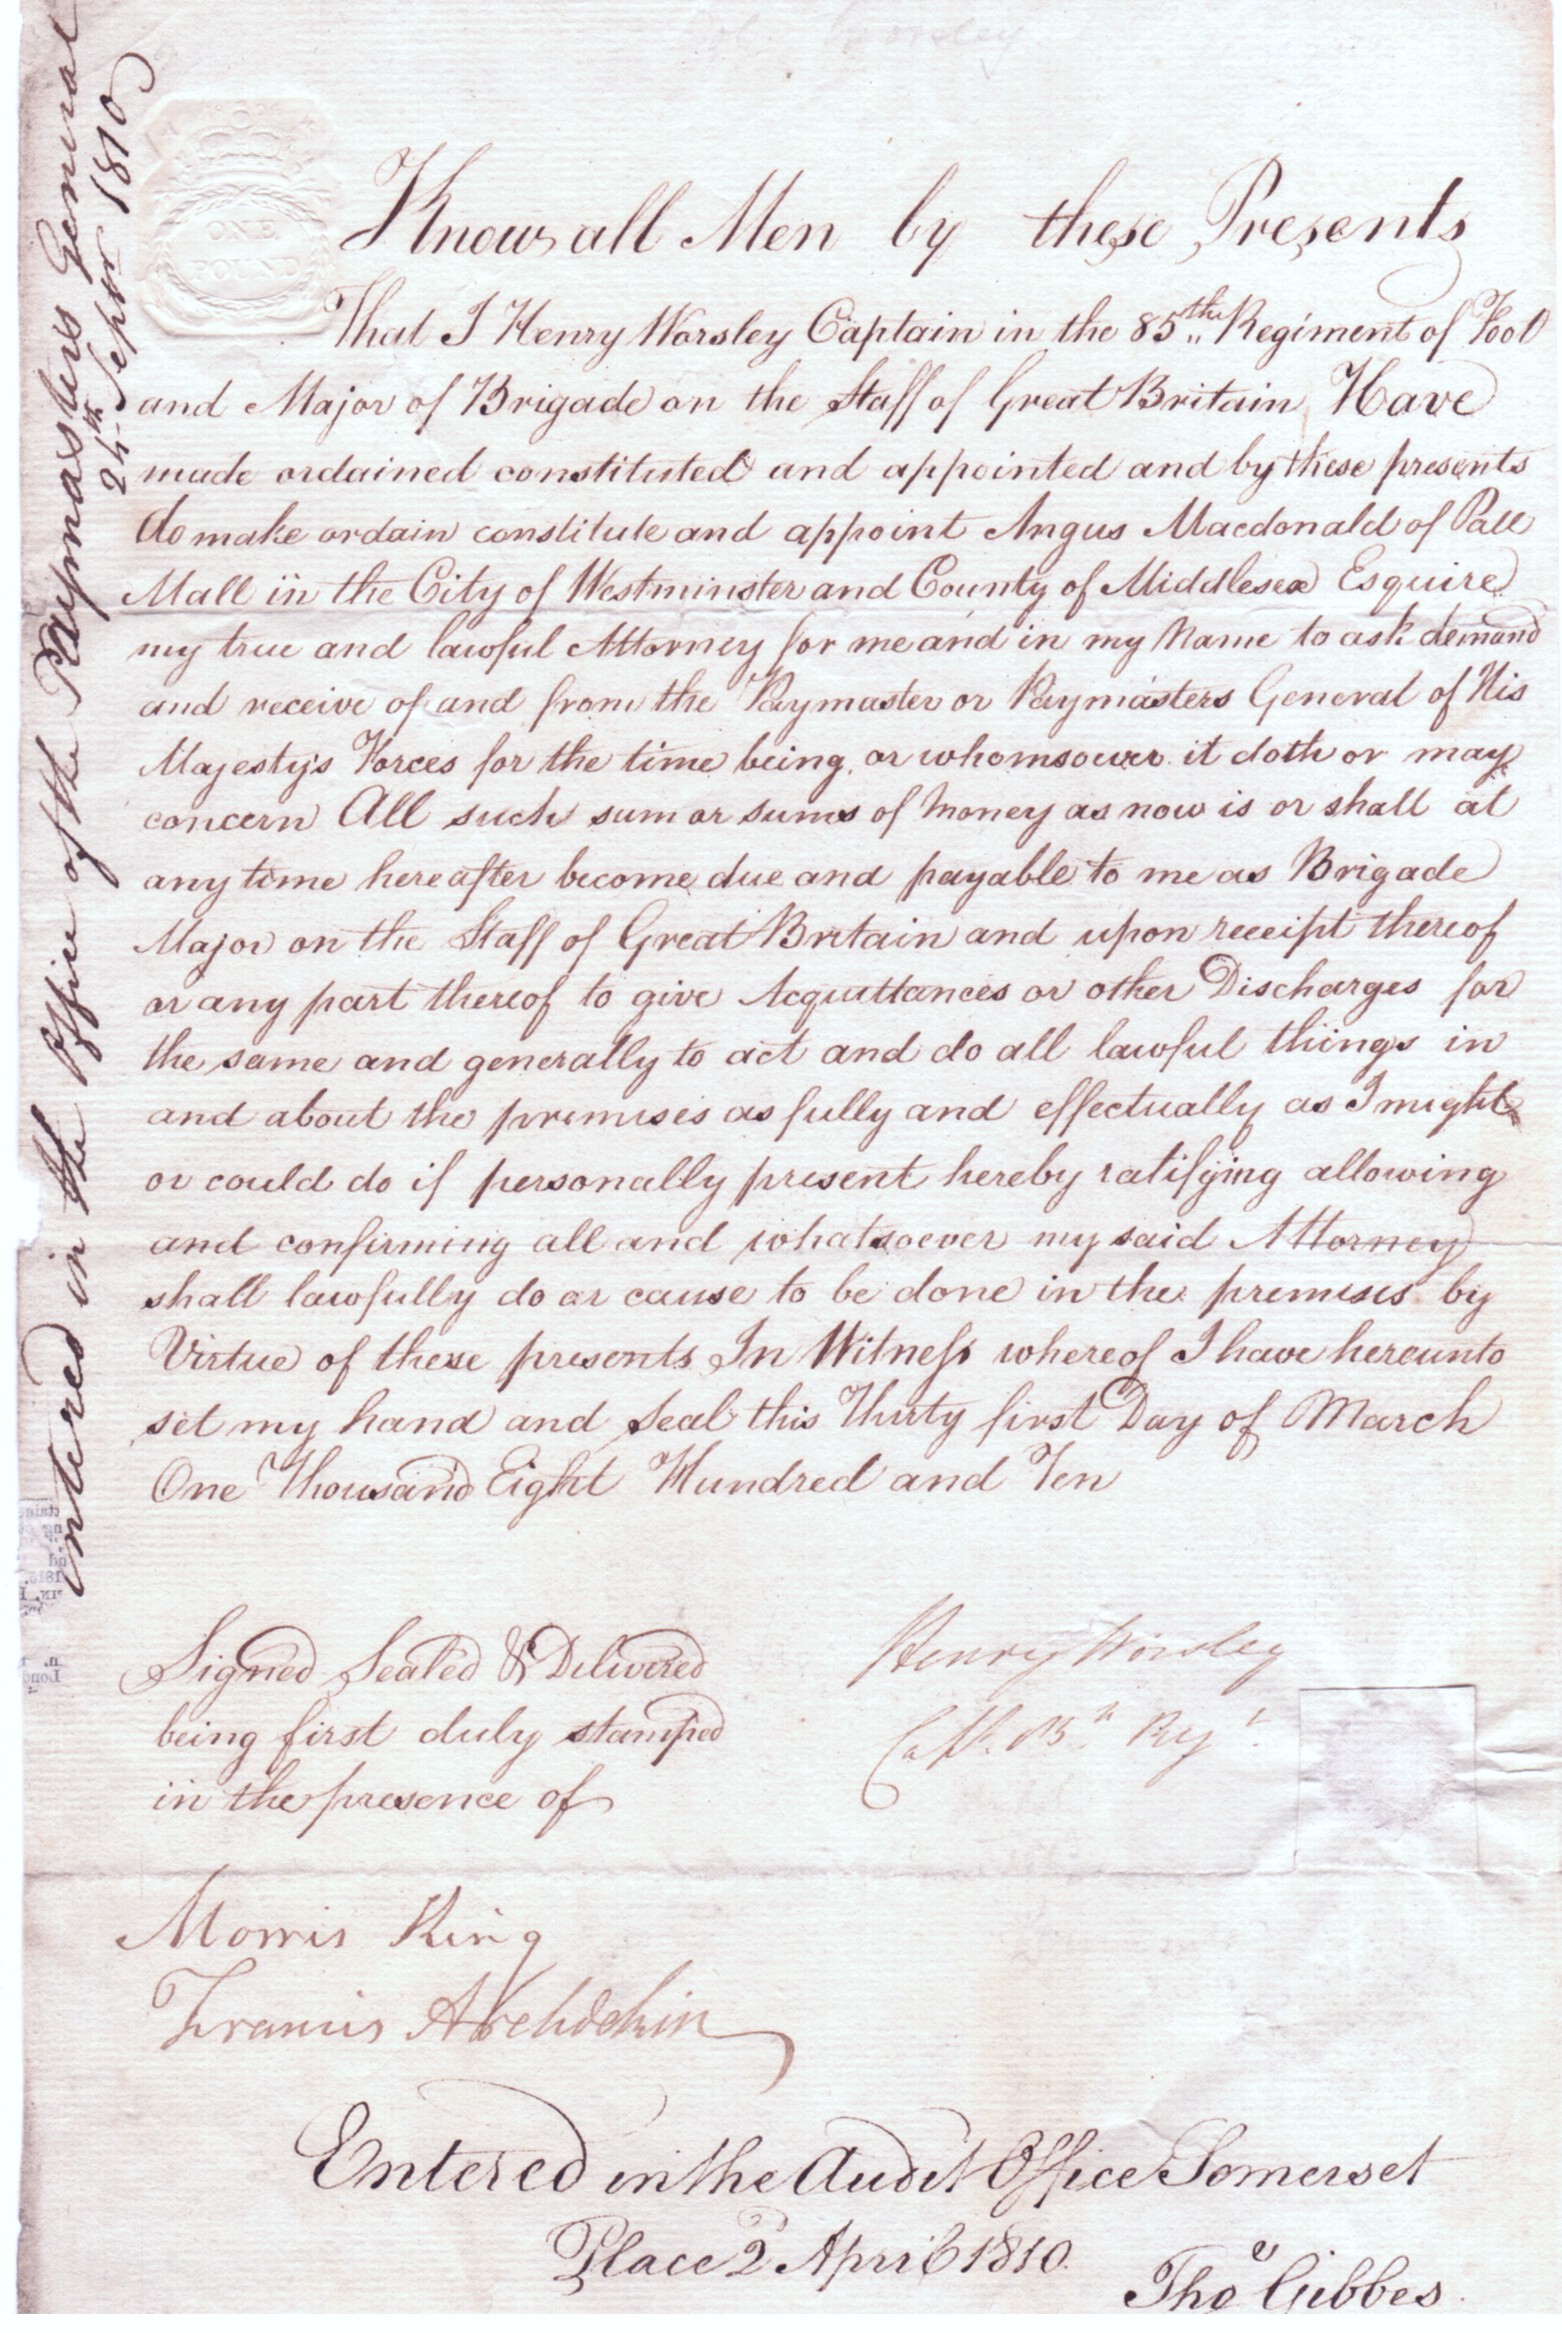 Entered in the Office of the Paymasters General
24th Septr 1810
ONE
POUND
Know all Men by these Presents
That I Henry Worsley Captain in the 85th Regiment of Foot
and Major of Brigade on the Staff of Great Britain Have
made ordained constituted and appointed and by these presents
do make ordain constitute and appoint Angus Macdonald of Pall
Mall in the City of Westminster and County of Middlesex Esquire
my true and lawful Attorney for me and in my Name to ask demand
and receive of and from the Paymaster or Paymasters General of His
Majesty's Forces for the time being, or whomsoever it doth or may
concern All such sum or sums of Money as now is or shall at
any time hereafter become due and payable to me as Brigade
Major on the Staff of Great Britain and upon receipt thereof
or any part thereof to give Acquittances or other Discharges for
the same and generally to act and do all lawful things in
and about the premises as fully and effectually as I might
or could do if personally present hereby ratifying allowing
and confirming all and whatsoever my said Attorney
shall lawfully do or cause to be done in the premises by
Virtue of these presents In Witness whereof I have hereunto
set my hand and Seal this Thirty first Day of March
One Thousand Eight Hundred and Ten
Signed Sealed & Delivered
being first duly stamped
in the presence of
Henry Worsley
Capt. 85th Regt.
Morris King
Francis
Entered in the Audit Office Somerset
Place 2 April 1810
Thos Gibbes